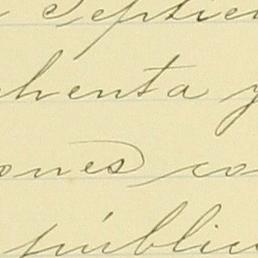 Septie
chenta y
ones co
públic